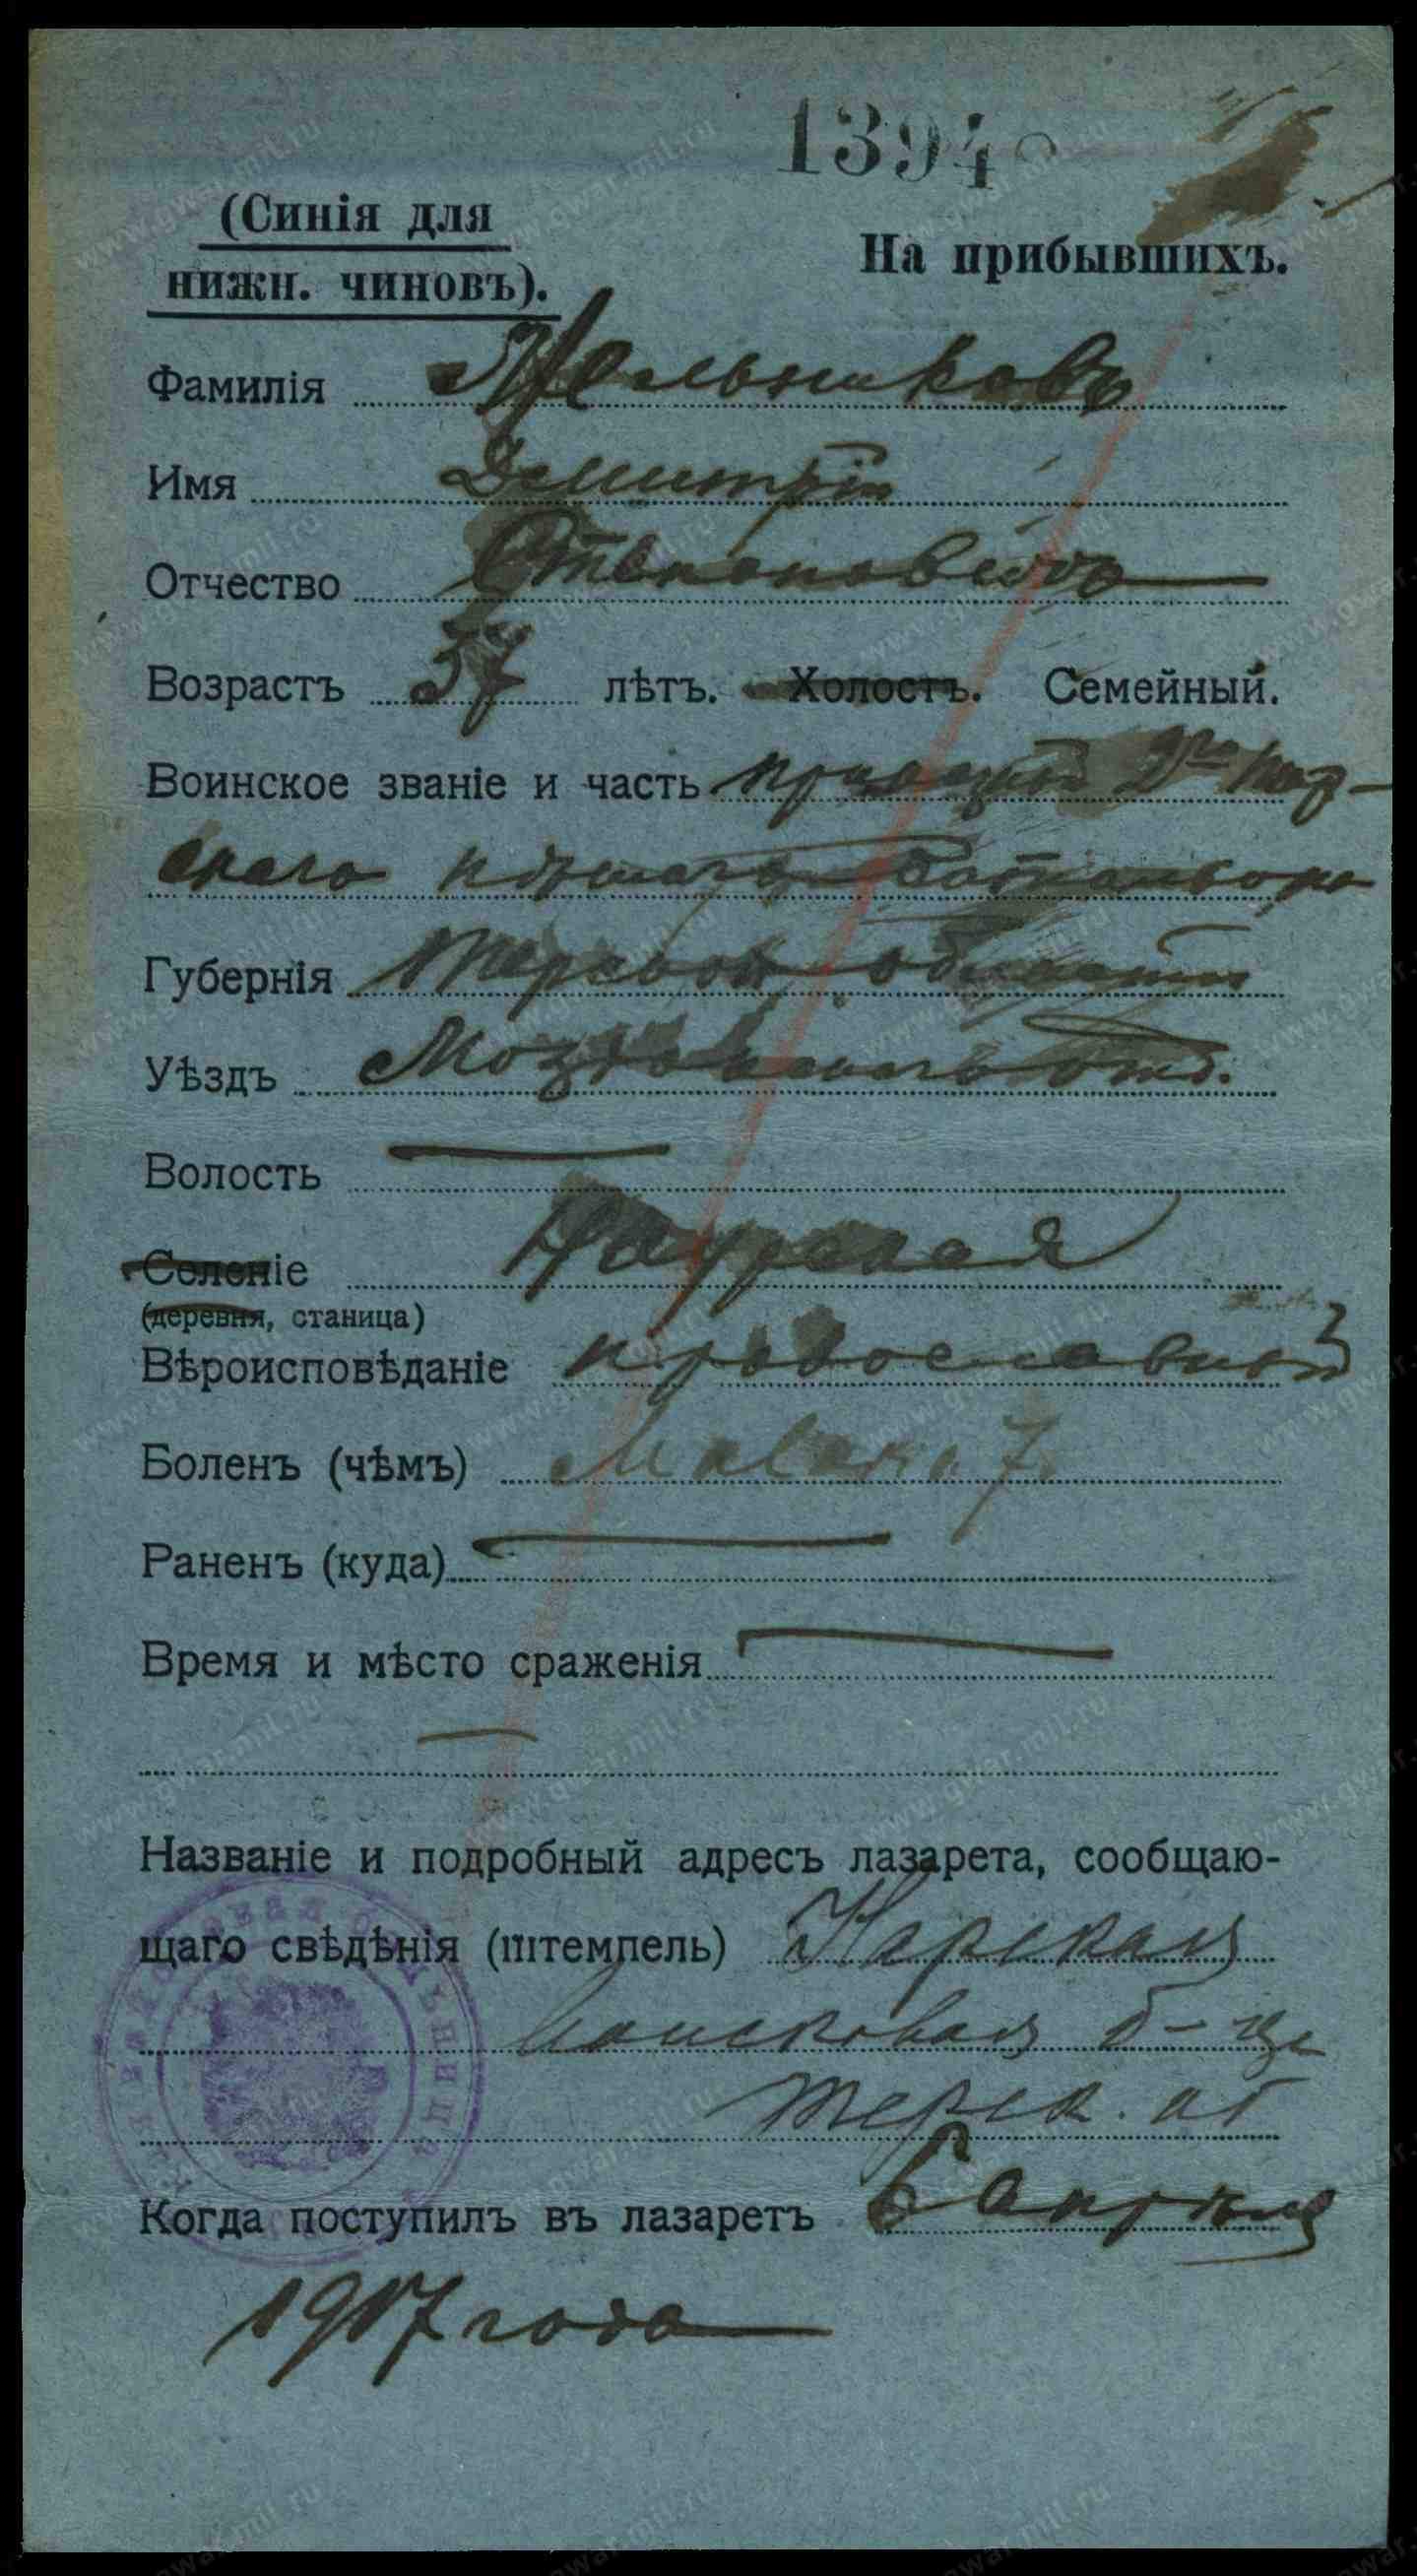 13940
(Синія для
нижн. чиновъ).
На прибывшихъ.
Фамилія Мельниковъ
Имя Дмитрій
Отчество Степановичъ
Возрастъ 37 лѣтъ. Холостъ. Семейный.
Воинское званіе и часть 2го
скаго пѣшаго баталіона
Губернія Терской области
Уѣздъ Моздокскаго отд.
Волость
Селеніе Наурская
(деревня, станица)
Вѣроисповѣданіе православной
Боленъ (чѣмъ)
Раненъ (куда)
Время и мѣсто сраженія
Названіе и подробный адресъ лазарета, сообщаю-
щаго свѣдѣнія (штемпель)
б-ца
Терск. об
Когда поступилъ въ лазаретъ 6 апрѣля
1917 года